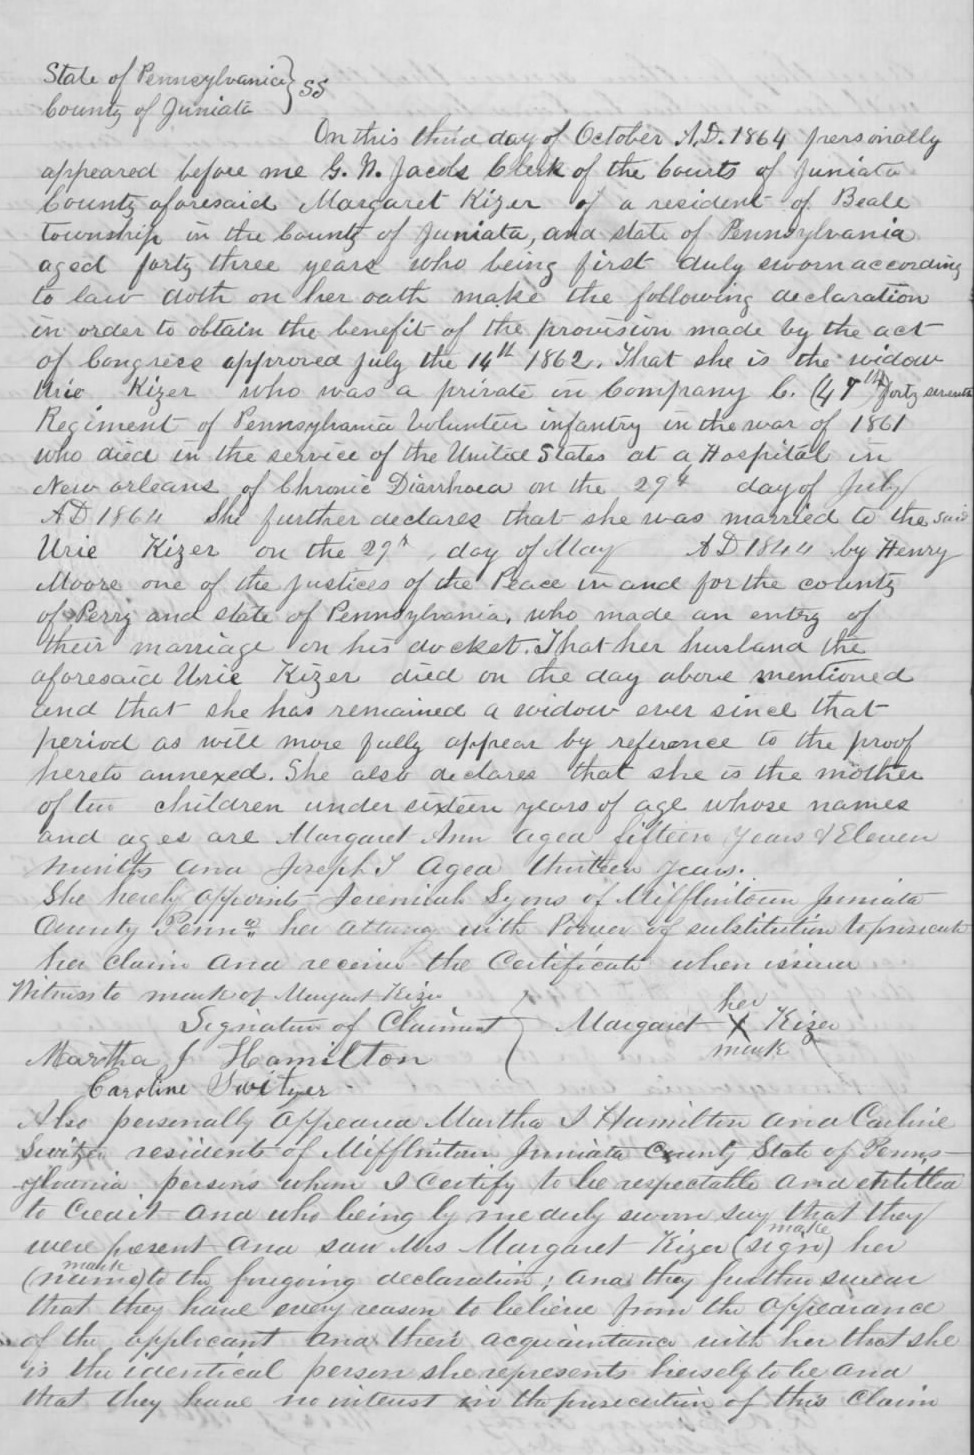 State of Pennsylvania } SS
County of Juniata
On this third day of October A.D. 1864 personally
appeared before me G. W. Jacobs Clerk of the Courts of Juniata
County aforesaid Margaret Kizer of a resident of Beale
township in the County of Juniata, and state of Pennsylvania
aged forty three years who being first duly sworn according
to law doth on her oath make the following declaration
in order to obtain the benefit of the provision made by the act
of Congress approved July the 14th 1862. That she is the widow
Urie Kizer who was a private in Company C. (47th) forty seventh
Regiment of Pennsylvania Volunteer infantry in the war of 1861
who died in the service of the United States at a Hospital in
New orleans of Chronic Diarrhoea on the 29th day of July
AD 1864 She further declares that she was married to the said
Urie Kizer on the 29th day of May AD 1844 by Henry
Moore one of the Justices of the Peace in and for the county
of Perry and state of Pennsylvania, who made an entry of
their marriage on his docket. That her husband the
aforesaid Urie Kizer died on the day above mentioned
and that she has remained a widow ever since that
period as will more fully appear by reference to the proof
hereto annexed. She also declares that she is the mother
of two children under sixteen years of age whose names
and ages are Margaret Ann aged fifteen years & Eleven
months and Joseph I aged thirteen years.
She hereby appoints Jeremiah Lyons of Mifflintown Juniata
County Penna her attorney with Power of substitution to prosecute
her claim and receive the Certificate when issued
Witness to mark of Margaret Kizer
her
Signature of Claimant } Margaret X Kizer
mark
Martha J Hamilton
Caroline Switzer
Also personally appeared Martha J Hamilton and Carline
Switzer residents of Mifflintown Juniata County State of Penns-
ylvania persons whom I certify to be respectable and entitled
to credit and who being by me duly sworn say that they
make
were present and saw Mrs Margaret Kizer (sign) her
mark
(name) to the foregoing declaration; and they further swear
that they have every reason to believe from the appearance
of the applicant and their acquaintance with her that she
is the identical person she represents herself to be and
that they have no interest in the prosecution of this Claim